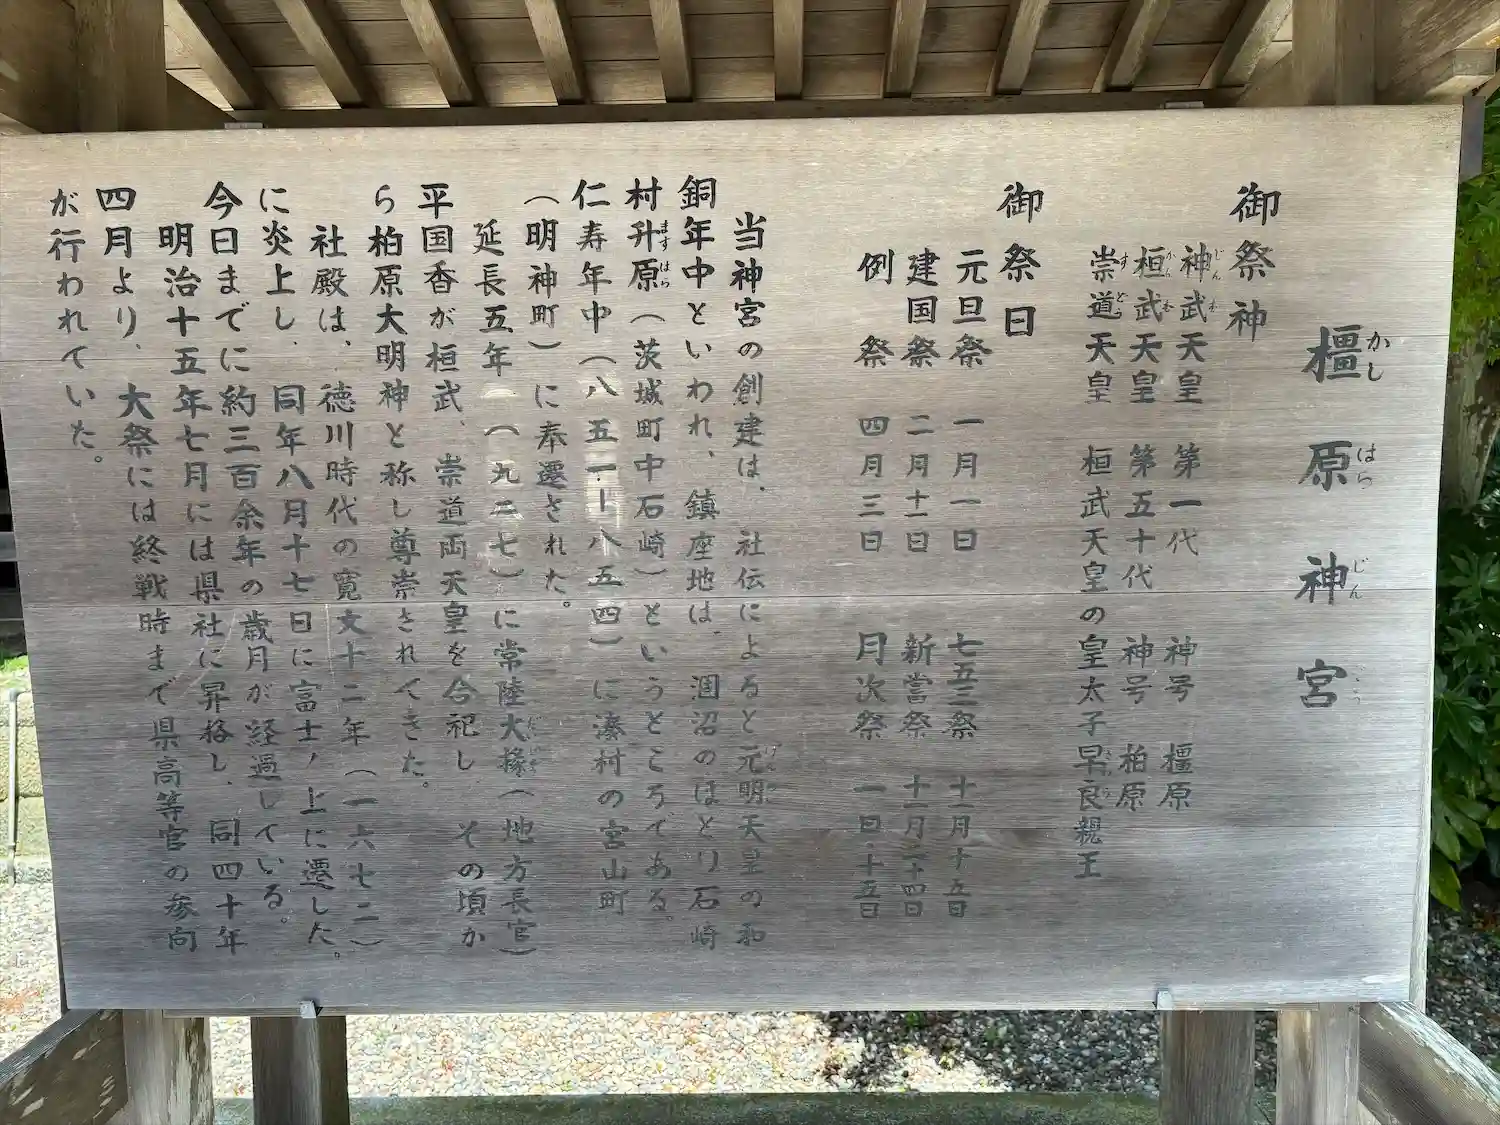 橿原神宮
御祭神
神武天皇 第一代 神号 橿原
桓武天皇 第五十代 神号 柏原
崇道天皇 桓武天皇の皇太子早良親王
御祭日
元旦祭 一月一日 七五三祭 十一月十五日
建国祭 二月十一日 新嘗祭 十一月二十四日
例祭 四月三日 月次祭 一日・十五日
当神宮の創建は、社伝によると元明天皇の和
銅年中といわれ、鎮座地は、涸沼のほとり石崎
村升原(茨城町中石崎)というところである。
仁寿年中(八五一ー八五四)に湊村の宮山町
(明神町)に奉遷された。
延長五年(九二七)に常陸大掾(地方長官)
平国香が桓武、崇道両天皇を合祀し、その頃か
ら柏原大明神と称し尊崇されてきた。
社殿は、徳川時代の寛文十二年(一六七二)
に炎上し、同年八月十七日に富士ノ上に遷した。
今日までに約三百余年の歳月が経過している。
明治十五年七月には県社に昇格し、同四十年
四月より、大祭には終戦時まで県高等官の参向
が行われていた。